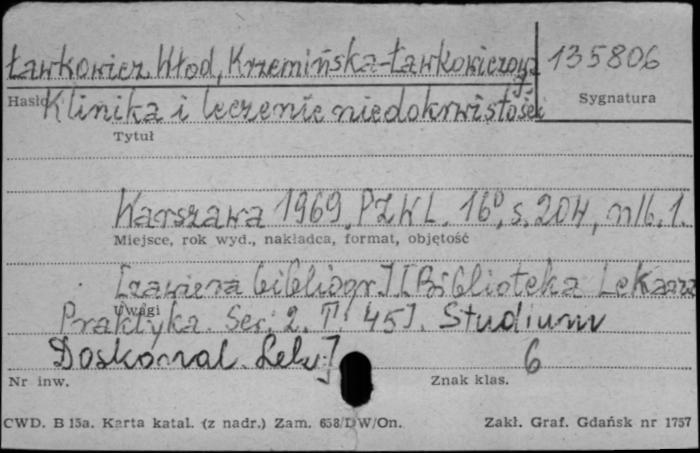 Ławkowicz Włod, Krzemińska-Ławkowiczowa 135806
Hasło Sygnatura
Klinika i leczenie niedokrwistości
Tytuł
Warszawa 1969, PZWL, 16°, s. 204, nlb. 1.
Miejsce, rok wyd., nakładca, format, objętość
[zawiera bibliogr] [Biblioteka Lekarza
Uwagi
Praktyka. Ser. 2. T. 45]. Studium
Doskonal. Lek.] 6
Nr inw. Znak klas.
CWD. B 15a. Karta katal. (z nadr.) Zam. 658/DW/On. Zakł. Graf. Gdańsk nr 1757